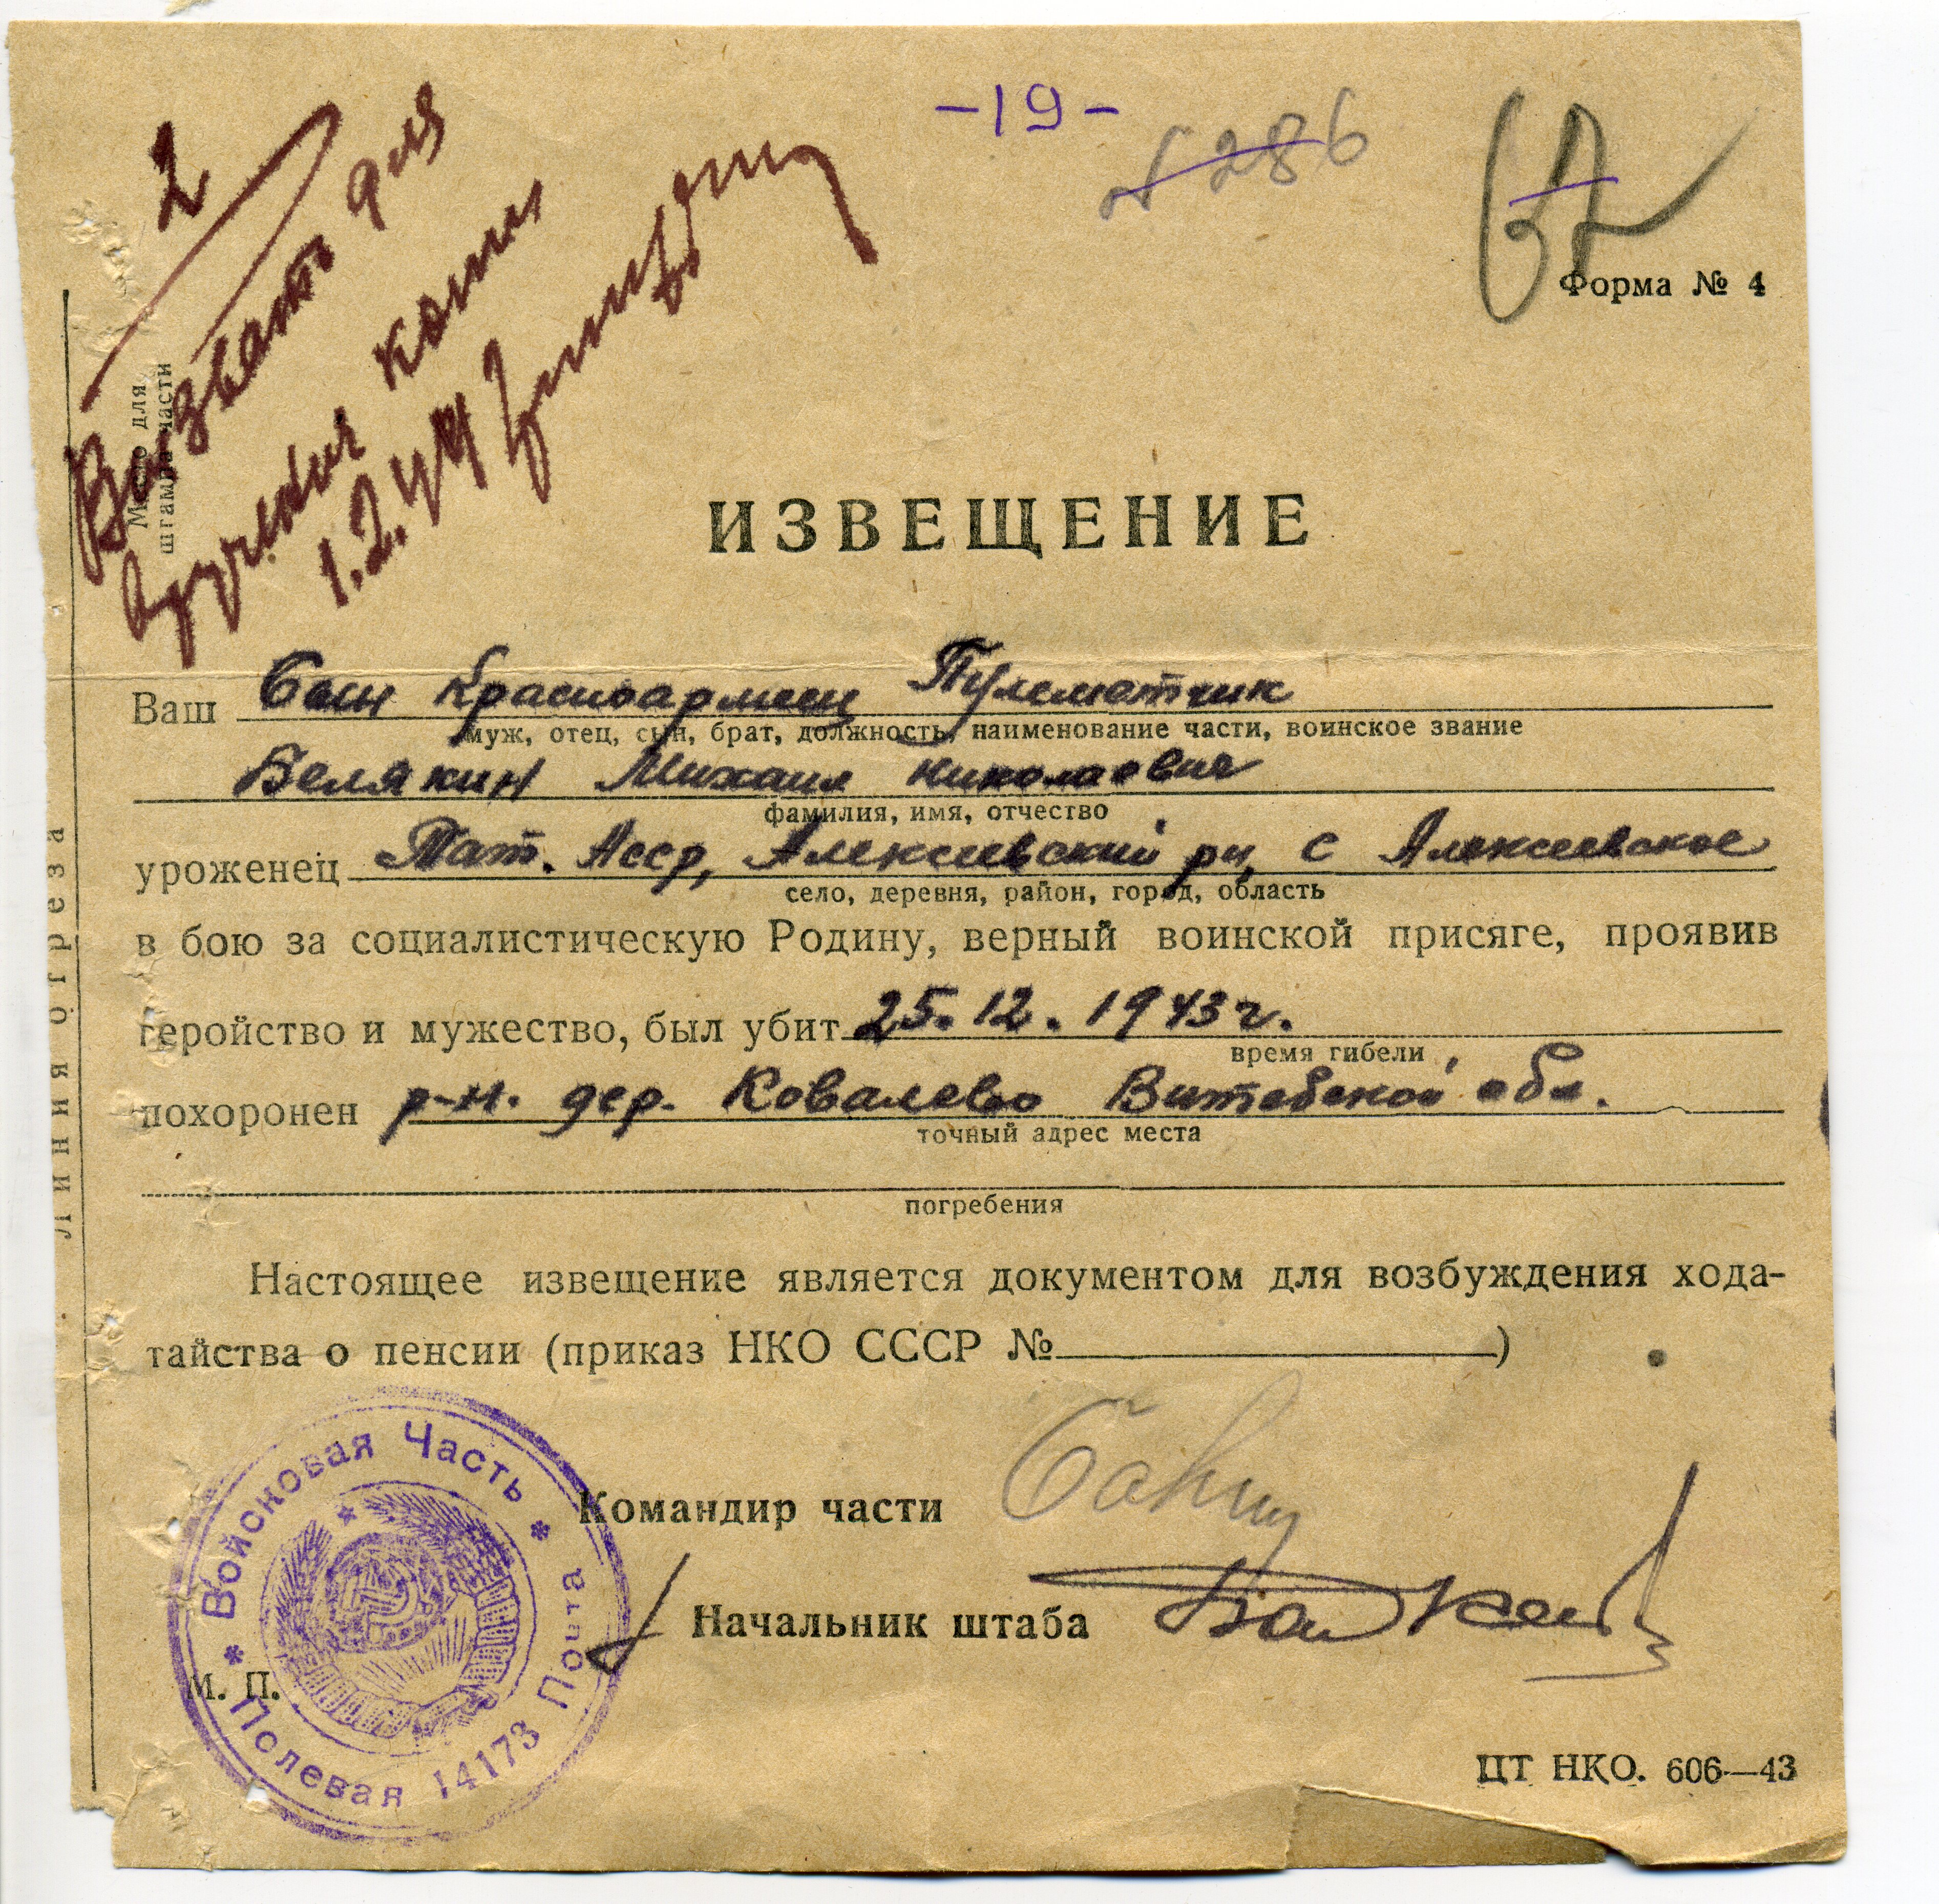 -19-
№ 286
67
Форма № 4
2
Вызвать для
вручения копии
1.2.44
Место для
штампа части
ИЗВЕЩЕНИЕ
Ваш Сын Красноармеец Пулеметчик
муж, отец, сын, брат, должность, наименование части, воинское звание
Белякин Михаил Николаевич
фамилия, имя, отчество
уроженец Тат. Асср, Алексеевский рн, с Алексеевское
село, деревня, район, город, область
в бою за социалистическую Родину, верный воинской присяге, проявив
геройство и мужество, был убит 25.12.1943г.
время гибели
похоронен р-н. дер. Ковалево Витебской обл.
точный адрес места
погребения
Настоящее извещение является документом для возбуждения хода-
тайства о пенсии (приказ НКО СССР №)
Командир части
Начальник штаба
М. П.
Войсковая Часть
Полевая Почта 14173
ЦТ НКО. 606—43
линия отреза